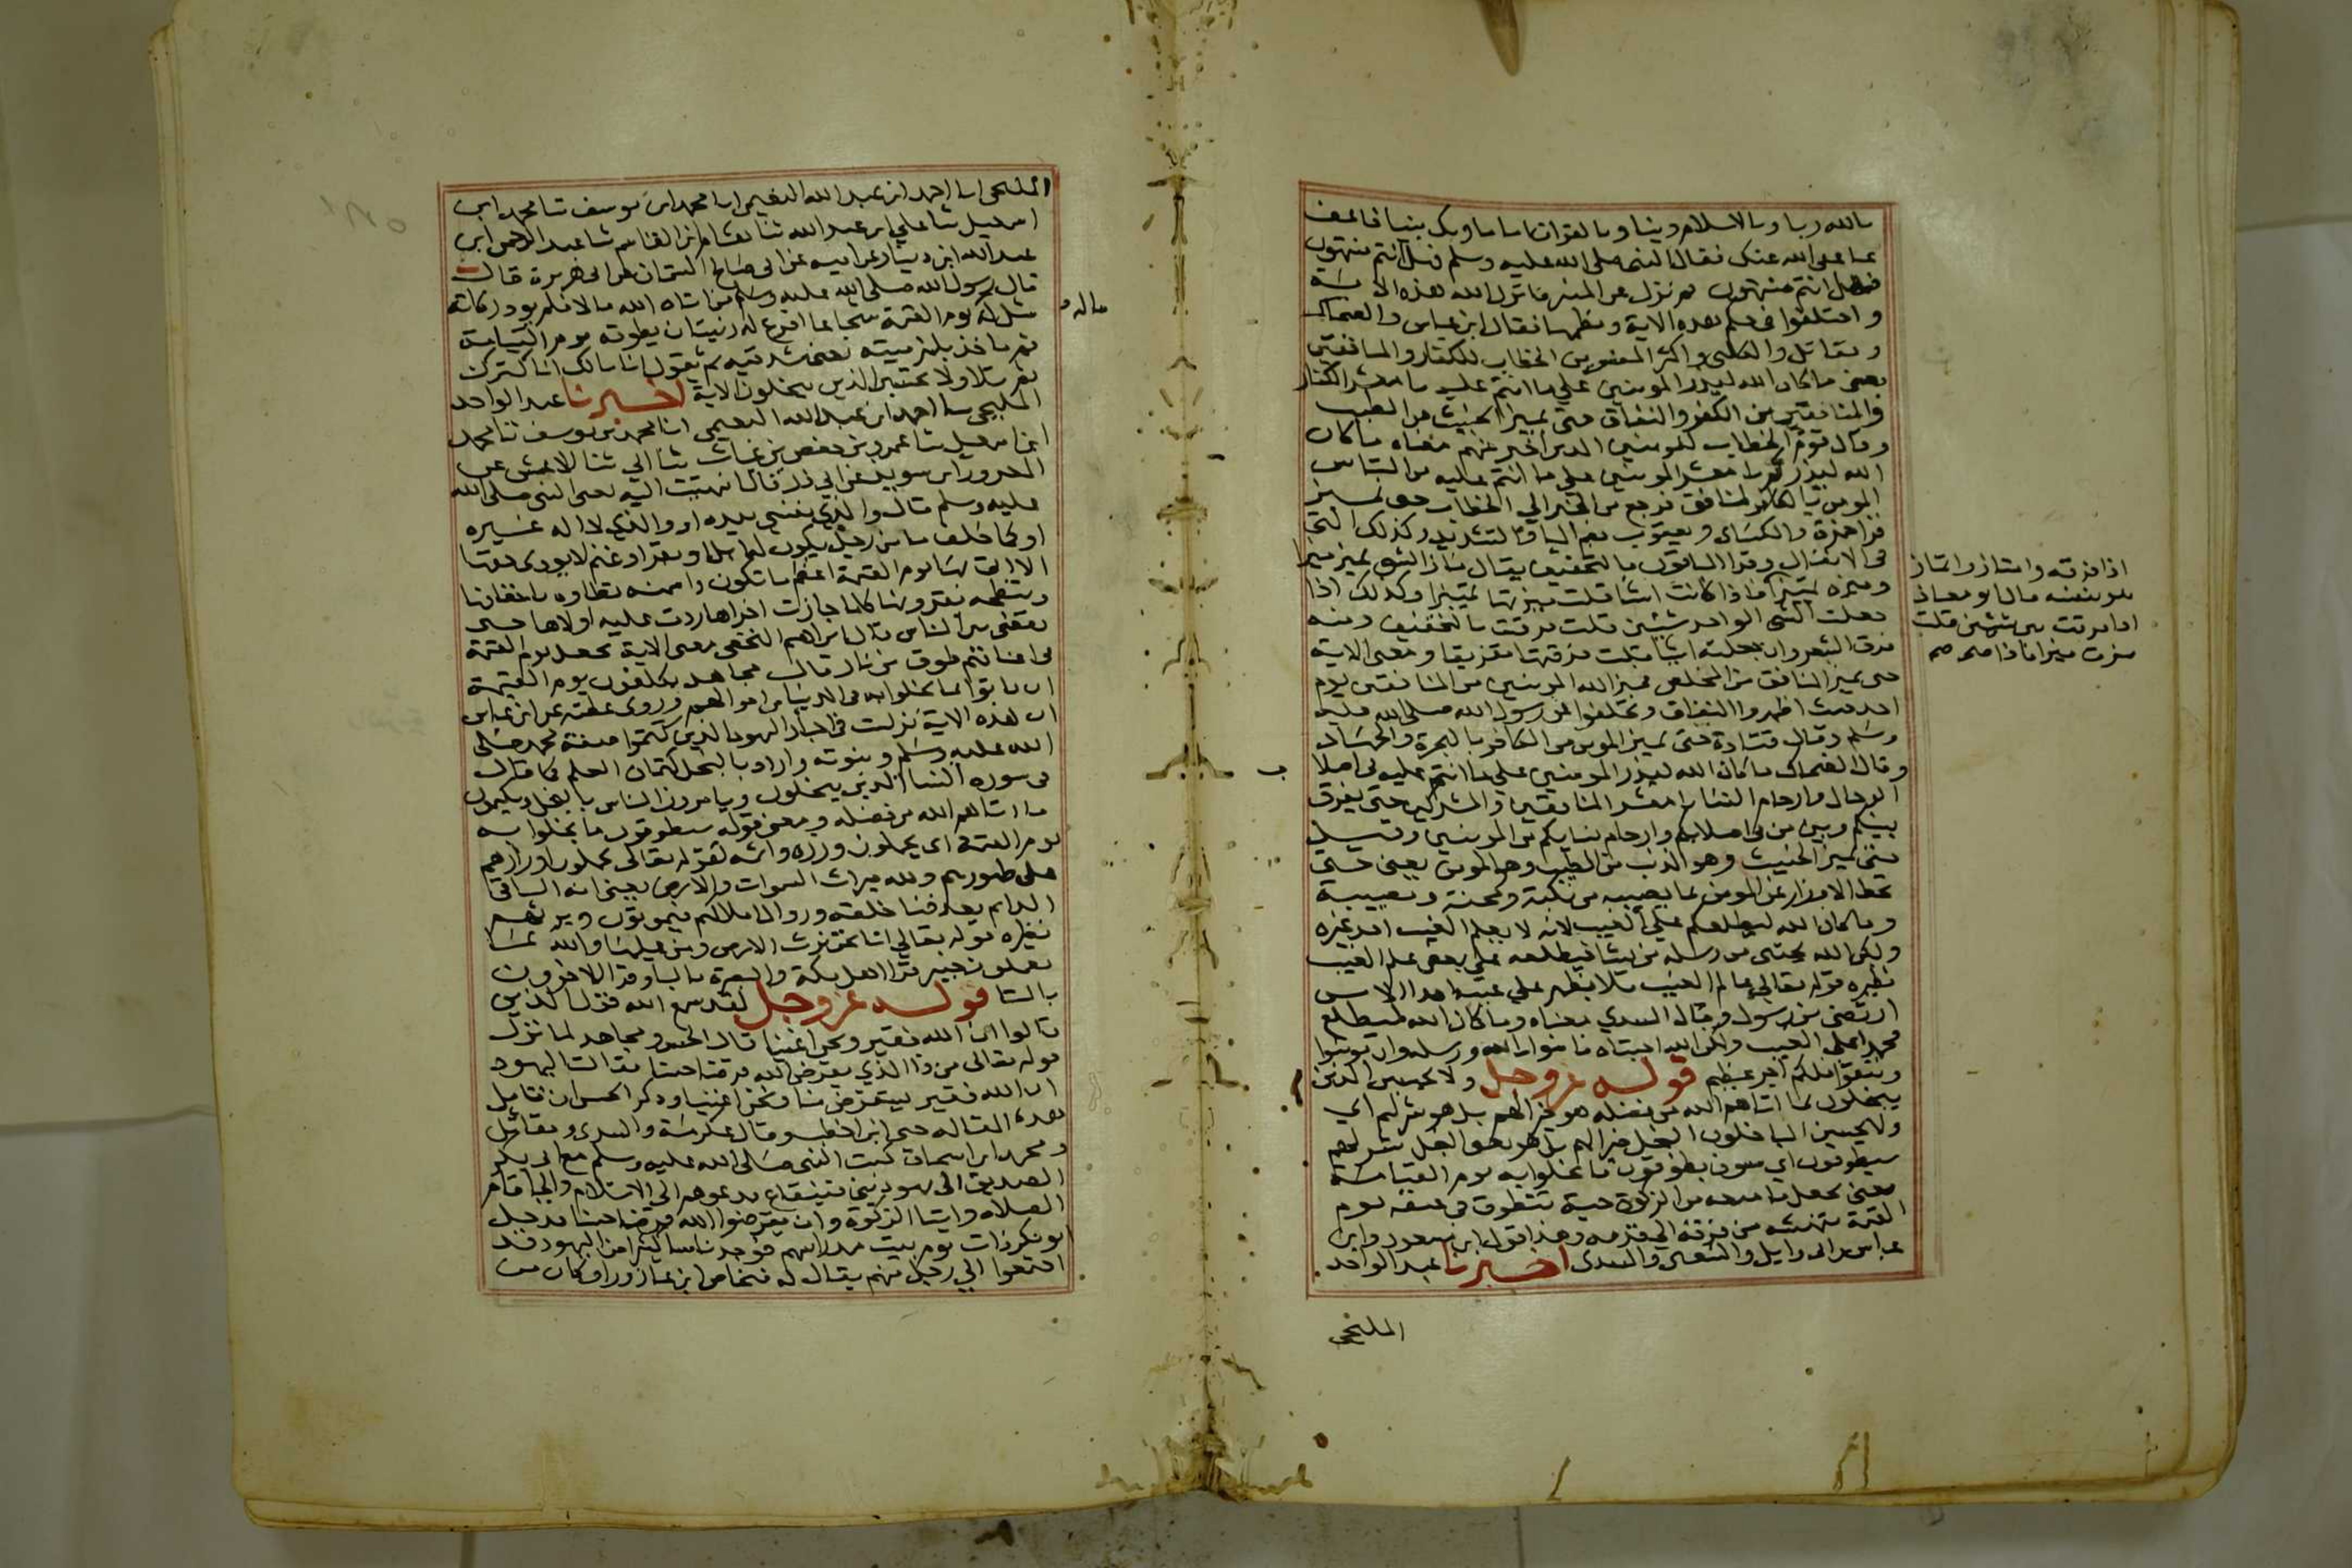 بالله ربا وبالاسلام دينا وبالقران اماما وبك نبيا فاعف
عنا عفى الله عنك فقال النبي صلى الله عليه وسلم فهل انتم منتهون
فهل انتم منتهون ثم نزل عن المنبر فانزل الله هذه الاية
واختلفوا في حكم هذه الاية ونظمها فقال ابن عباس والضحاك
ومقاتل والكلبي واكثر المفسرين الخطاب للكفار والمنافقين
يعني ما كان الله ليذر المومنين على ما انتم عليه يا معشر الكفار
والمنافقين من الكفر والنفاق حتى يميز الخبيث من الطيب
وقال قوم الخطاب للمومنين الذين اخبر عنهم معناه ما كان
الله ليذركم يا معشر المومنين على ما انتم عليه من التباس
المومن بالمنافق فرجع من الخبر الى الخطاب حتى يميز
قرا حمزة والكساى ويعقوب بضم اليا والتشديد وكذلك التي
في الانفال وقرا الباقون بالتخفيف يقال ماز الشي يميزه ميزا
وميزه تمييزا فاذا كانت اشيا قلت ميزتها تمييزا وكذلك اذا
جعلت الشي الواحد شيئين قلت فرقت بالتخفيف ومنه
فرق الشعر وان جعلته اشيا قلت فرقتها تفريقا ومعنى الاية
حتى يميز المنافق من المخلص فميز الله المومنين من المنافقين يوم
احد حيث اظهروا النفاق وتخلفوا عن رسول الله صلى الله عليه
وسلم وقال قتادة حتى يميز المومن من الكافر بالهجرة والجهاد
وقال الضحاك ما كان الله ليذر المومنين على ما انتم عليه في اصلاب
الرجال وارحام النسا يا معشر المنافقين والمشركين حتى يفرق
بينكم وبين من في اصلابكم وارحام نسايكم من المومنين وقيل
حتى يميز الخبيث وهو الذنب من الطيب وهو المومن يعني حتى
تحط الاوزار عن المومن بما يصيبه من نكبة ومحنة ومصيبة
وما كان الله ليطلعكم على الغيب لانه لا يعلم الغيب احد غيره
ولكن الله يجتبي من رسله من يشا فيطلعه على بعض علم الغيب
نظيره قوله تعالى عالم الغيب فلا يظهر على غيبه احدا الا من
ارتضى من رسول وقال السدي معناه وما كان الله ليطلع
محمدا على الغيب ولكن الله اجتباه فامنوا بالله ورسله وان تومنوا
وتتقوا فلكم اجر عظيم قوله عز وجل ولا يحسبن الذين
يبخلون بما اتاهم الله من فضله هو خيرا لهم بل هو شر لهم اي
ولا يحسبن الباخلون البخل خيرا لهم بل هو يعني البخل شر لهم
سيطوقون اي سوف يطوقون ما بخلوا به يوم القيامة
يعني يجعل ما منعه من الزكوة حية تتطوق في عنقه يوم
القيمة تنهشه من فرقه الى قدمه وهذا قول ابن مسعود وابن
عباس وابي وايل والشعبي والسدى اخبرنا عبد الواحد
المليحي
اذا فرقته وامتاز وانماز
هو بنفسه قال ابو معاذ
اذا فرقت بين شيئين قلت
مزت ميزا فاذا
المليحي انا احمد ابن عبد الله النعيمي انا محمد ابن يوسف ثنا محمد ابن
اسمعيل ثنا علي ابن عبد الله ثنا هشام ابن القاسم ثنا عبد الرحمن ابن
عبد الله ابن دينار عن ابيه عن ابي صالح السمان عن ابى هريرة قال
قال رسول الله صلى الله عليه وسلم من اتاه الله مالا فلم يود زكاته
مثل له يوم القيمة شجاعا اقرع له زبيبتان يطوقه يوم القيامة
ماله
ثم ياخذ بلهزمتيه يعني شدقيه ثم يقول انا مالك انا كنزك
ثم تلا ولا يحسبن الذين يبخلون الاية اخبرنا عبد الواحد
المليحي انا احمد ابن عبد الله النعيمي انا محمد بن يوسف ثنا محمد
ابن اسمعيل ثنا عمرو بن حفص بن غياث ثنا ابي ثنا الاعمش عن
المعرور ابن سويد عن ابي ذر قال انتهيت اليه يعنى النبي صلى الله
عليه وسلم قال والذي نفسي بيده او والذي لا اله غيره
او كما حلف ما من رجل يكون له ابل او بقر او غنم لا يودي حقها
الا اتى بها يوم القيمة اعظم ما تكون واسمنه تطاوه باخفافها
وتنطحه بقرونها كلما جازت اخراها ردت عليه اولاها حتى
يقضى بين الناس قال ابراهيم النخعي معنى الاية يجعل يوم القيمة
في اعناقهم طوق من نار قال مجاهد يكلفون يوم القيمة
ان ياتوا بما بخلوا به في الدنيا من اموالهم وروى عطية عن ابن عباس
ان هذه الاية نزلت في احبار اليهود الذين كتموا صفة محمد صلى
الله عليه وسلم ونبوته واراد بالبخل كتمان العلم كما قال
في سورة النسا الذين يبخلون ويامرون الناس بالبخل ويكتمون
ما اتاهم الله من فضله ومعنى قوله سيطوقون ما بخلوا به
يوم القيمة اي يحملون وزره واثمه لقوله تعالى يحملون اوزارهم
على ظهورهم ولله ميراث السموات والارض يعني انه الباقي
الدايم بعد فنا خلقه وزوال املاكهم فيموتون ويرثهم
نظيره قوله تعالى انا نحن نرث الارض ومن عليها والله بما
يعملون خبير قرا اهل مكة والبصرة باليا وقرا الاخرون
بالتا قوله عز وجل لقد سمع الله قول الذين
قالوا ان الله فقير ونحن اغنيا قال الحسن ومجاهد لما نزل
قوله تعالى من ذا الذي يقرض الله قرضا حسنا قالت اليهود
ان الله فقير يستقرض منا ونحن اغنيا وذكر الحسن ان قايل
هذه المقالة حيي ابن اخطب وقال عكرمة والسدى ومقاتل
ومحمد ابن اسحاق كتب النبي صلى الله عليه وسلم مع ابي بكر
الصديق الى يهود بني قينقاع يدعوهم الى الاسلام والى اقام
الصلاة وايتا الزكوة وان يقرضوا الله قرضا حسنا فدخل
ابو بكر ذات يوم بيت مدراسهم فوجد ناسا كثيرا من اليهود قد
اجتمعوا الي رجل منهم يقال له فنخاص ابن عازورا وكان من